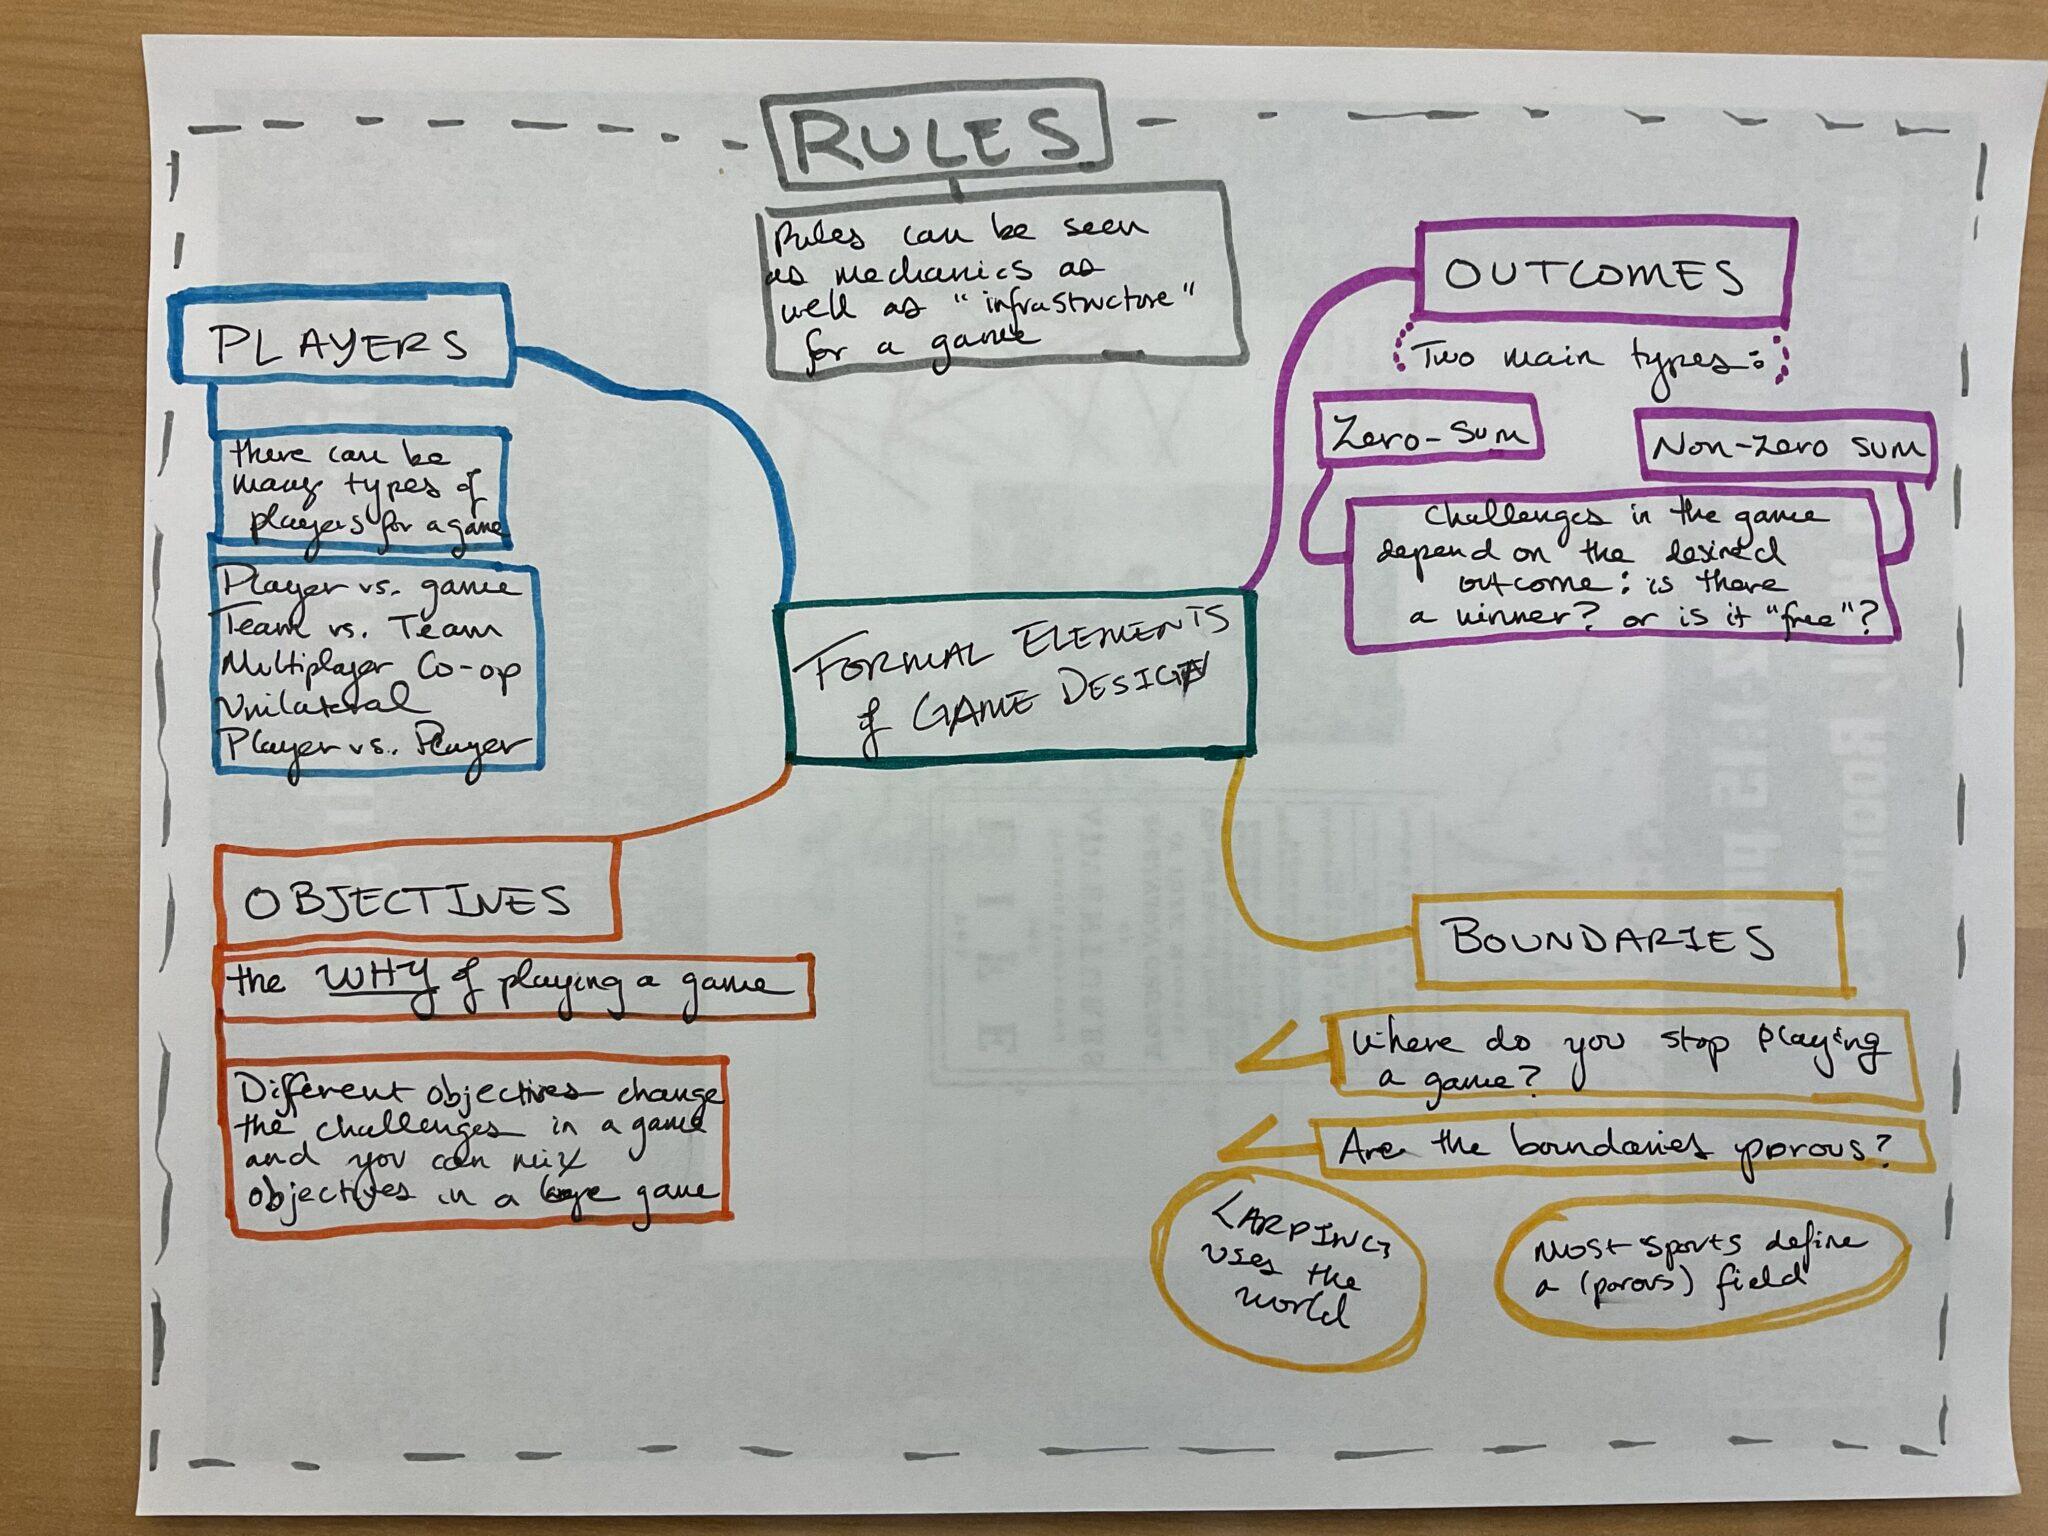 RULES
Rules can be seen
as mechanics as
well as "infrastructure"
for a game
PLAYERS
there can be
many types of
players for a game
Player vs. game
Team vs. Team
Multiplayer Co-op
Unilateral
Player vs. Player
OUTCOMES
Two main types:
Zero-sum
Non-zero sum
Challenges in the game
depend on the desired
outcome: is there
a winner? or is it "free"?
FORMAL ELEMENTS
of GAME DESIGN
OBJECTIVES
the WHY of playing a game
Different objectives change
the challenges in a game
and you can mix
objectives in a large game
BOUNDARIES
Where do you stop playing
a game?
Are the boundaries porous?
LARPING
uses the
world
Most sports define
a (porous) field